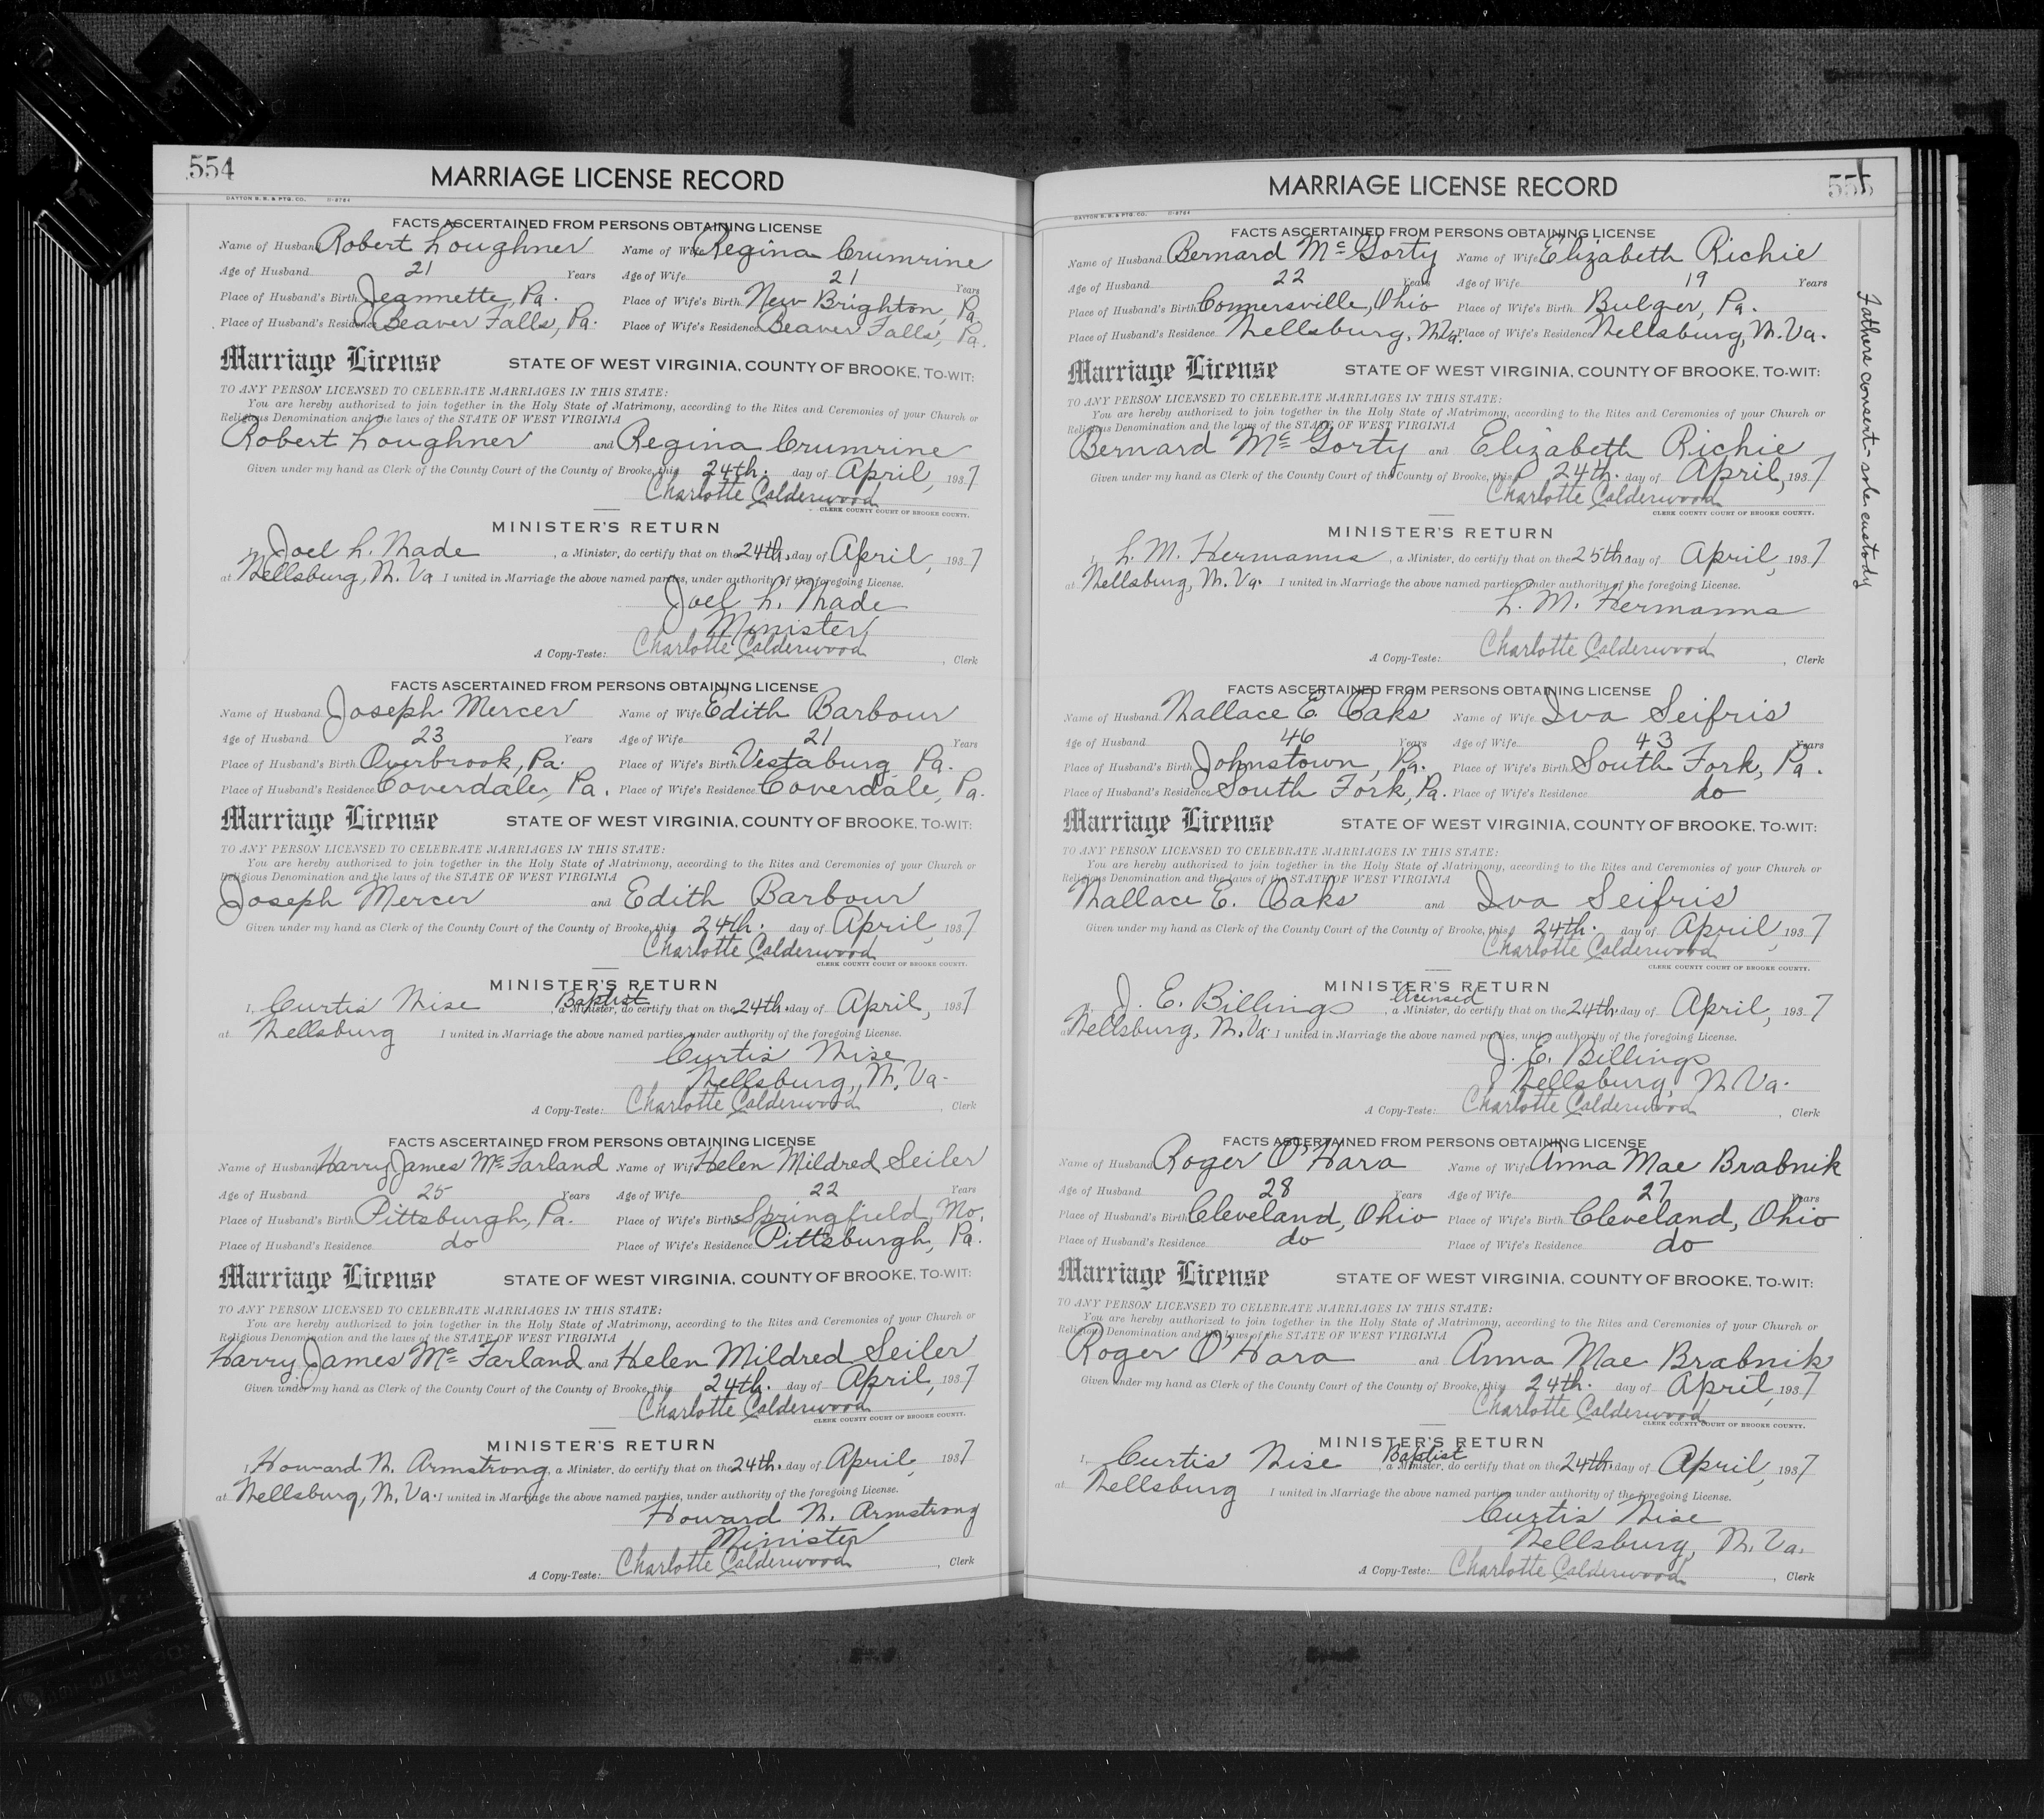 554
MARRIAGE LICENSE RECORD
DAYTON B. B. & PTG. CO.
FACTS ASCERTAINED FROM PERSONS OBTAINING LICENSE
Name of Husband Robert Loughner Name of Wife Regina Crumrine
Age of Husband 21 Years Age of Wife 21 Years
Place of Husband's Birth Jeannette, Pa. Place of Wife's Birth New Brighton, Pa.
Place of Husband's Residence Beaver Falls, Pa. Place of Wife's Residence Beaver Falls, Pa.
Marriage License STATE OF WEST VIRGINIA, COUNTY OF BROOKE, TO-WIT:
TO ANY PERSON LICENSED TO CELEBRATE MARRIAGES IN THIS STATE:
You are hereby authorized to join together in the Holy State of Matrimony, according to the Rites and Ceremonies of your Church or
Religious Denomination and the laws of the STATE OF WEST VIRGINIA
Robert Loughner and Regina Crumrine
Given under my hand as Clerk of the County Court of the County of Brooke, this 24th. day of April, 1937
Charlotte Calderwood
CLERK COUNTY COURT OF BROOKE COUNTY.
MINISTER'S RETURN
Joel L. Wade, a Minister, do certify that on the 24th. day of April, 1937
at Wellsburg, W. Va. I united in Marriage the above named parties, under authority of the foregoing License.
Joel L. Wade
Minister
A Copy-Teste: Charlotte Calderwood, Clerk
FACTS ASCERTAINED FROM PERSONS OBTAINING LICENSE
Name of Husband Joseph Mercer Name of Wife Edith Barbour
Age of Husband 23 Years Age of Wife 21 Years
Place of Husband's Birth Overbrook, Pa. Place of Wife's Birth Vestaburg Pa.
Place of Husband's Residence Coverdale, Pa. Place of Wife's Residence Coverdale, Pa.
Marriage License STATE OF WEST VIRGINIA, COUNTY OF BROOKE, TO-WIT:
TO ANY PERSON LICENSED TO CELEBRATE MARRIAGES IN THIS STATE:
You are hereby authorized to join together in the Holy State of Matrimony, according to the Rites and Ceremonies of your Church or
Religious Denomination and the laws of the STATE OF WEST VIRGINIA
Joseph Mercer and Edith Barbour
Given under my hand as Clerk of the County Court of the County of Brooke, this 24th. day of April, 1937
Charlotte Calderwood
CLERK COUNTY COURT OF BROOKE COUNTY.
MINISTER'S RETURN
Baptist
I, Curtis Wise, a Minister, do certify that on the 24th. day of April, 1937
at Wellsburg I united in Marriage the above named parties, under authority of the foregoing License.
Curtis Wise
Wellsburg, W. Va.
A Copy-Teste: Charlotte Calderwood, Clerk
FACTS ASCERTAINED FROM PERSONS OBTAINING LICENSE
Name of Husband Harry James McFarland Name of Wife Helen Mildred Seiler
Age of Husband 25 Years Age of Wife 22 Years
Place of Husband's Birth Pittsburgh, Pa. Place of Wife's Birth Springfield, Mo.
Place of Husband's Residence do Place of Wife's Residence Pittsburgh, Pa.
Marriage License STATE OF WEST VIRGINIA, COUNTY OF BROOKE, TO-WIT:
TO ANY PERSON LICENSED TO CELEBRATE MARRIAGES IN THIS STATE:
You are hereby authorized to join together in the Holy State of Matrimony, according to the Rites and Ceremonies of your Church or
Religious Denomination and the laws of the STATE OF WEST VIRGINIA
Harry James McFarland and Helen Mildred Seiler
Given under my hand as Clerk of the County Court of the County of Brooke, this 24th. day of April, 1937
Charlotte Calderwood
CLERK COUNTY COURT OF BROOKE COUNTY.
MINISTER'S RETURN
I, Howard W. Armstrong, a Minister, do certify that on the 24th. day of April, 1937
at Wellsburg, W. Va. I united in Marriage the above named parties, under authority of the foregoing License.
Howard W. Armstrong
Minister
A Copy-Teste: Charlotte Calderwood, Clerk
555
MARRIAGE LICENSE RECORD
DAYTON B. B. & PTG. CO.
FACTS ASCERTAINED FROM PERSONS OBTAINING LICENSE
Name of Husband Bernard McGorty Name of Wife Elizabeth Richie
Age of Husband 22 Years Age of Wife 19 Years
Place of Husband's Birth Connersville, Ohio Place of Wife's Birth Bulger, Pa.
Place of Husband's Residence Wellsburg, W.Va. Place of Wife's Residence Wellsburg, W. Va.
Fathers consent - sole custody
Marriage License STATE OF WEST VIRGINIA, COUNTY OF BROOKE, TO-WIT:
TO ANY PERSON LICENSED TO CELEBRATE MARRIAGES IN THIS STATE:
You are hereby authorized to join together in the Holy State of Matrimony, according to the Rites and Ceremonies of your Church or
Religious Denomination and the laws of the STATE OF WEST VIRGINIA
Bernard McGorty and Elizabeth Richie
Given under my hand as Clerk of the County Court of the County of Brooke, this 24th. day of April, 1937
Charlotte Calderwood
CLERK COUNTY COURT OF BROOKE COUNTY.
MINISTER'S RETURN
I, L. M. Hermanns, a Minister, do certify that on the 25th day of April, 1937
at Wellsburg, W. Va. I united in Marriage the above named parties, under authority of the foregoing License.
L. M. Hermanns
A Copy-Teste: Charlotte Calderwood, Clerk
FACTS ASCERTAINED FROM PERSONS OBTAINING LICENSE
Name of Husband Wallace E. Oaks Name of Wife Iva Seifris
Age of Husband 46 Years Age of Wife 43 Years
Place of Husband's Birth Johnstown, Pa. Place of Wife's Birth South Fork, Pa.
Place of Husband's Residence South Fork, Pa. Place of Wife's Residence do
Marriage License STATE OF WEST VIRGINIA, COUNTY OF BROOKE, TO-WIT:
TO ANY PERSON LICENSED TO CELEBRATE MARRIAGES IN THIS STATE:
You are hereby authorized to join together in the Holy State of Matrimony, according to the Rites and Ceremonies of your Church or
Religious Denomination and the laws of the STATE OF WEST VIRGINIA
Wallace E. Oaks and Iva Seifris
Given under my hand as Clerk of the County Court of the County of Brooke, this 24th. day of April, 1937
Charlotte Calderwood
CLERK COUNTY COURT OF BROOKE COUNTY.
MINISTER'S RETURN
licensed
I, J. E. Billings, a Minister, do certify that on the 24th. day of April, 1937
at Wellsburg, W. Va. I united in Marriage the above named parties, under authority of the foregoing License.
J. E. Billings
Wellsburg, W. Va.
A Copy-Teste: Charlotte Calderwood, Clerk
FACTS ASCERTAINED FROM PERSONS OBTAINING LICENSE
Name of Husband Roger O'Hara Name of Wife Anna Mae Brabnik
Age of Husband 28 Years Age of Wife 27 Years
Place of Husband's Birth Cleveland, Ohio Place of Wife's Birth Cleveland, Ohio
Place of Husband's Residence do Place of Wife's Residence do
Marriage License STATE OF WEST VIRGINIA, COUNTY OF BROOKE, TO-WIT:
TO ANY PERSON LICENSED TO CELEBRATE MARRIAGES IN THIS STATE:
You are hereby authorized to join together in the Holy State of Matrimony, according to the Rites and Ceremonies of your Church or
Religious Denomination and the laws of the STATE OF WEST VIRGINIA
Roger O'Hara and Anna Mae Brabnik
Given under my hand as Clerk of the County Court of the County of Brooke, this 24th. day of April, 1937
Charlotte Calderwood
CLERK COUNTY COURT OF BROOKE COUNTY.
MINISTER'S RETURN
Baptist
I, Curtis Wise, a Minister, do certify that on the 24th. day of April, 1937
at Wellsburg I united in Marriage the above named parties, under authority of the foregoing License.
Curtis Wise
Wellsburg, W. Va.
A Copy-Teste: Charlotte Calderwood, Clerk